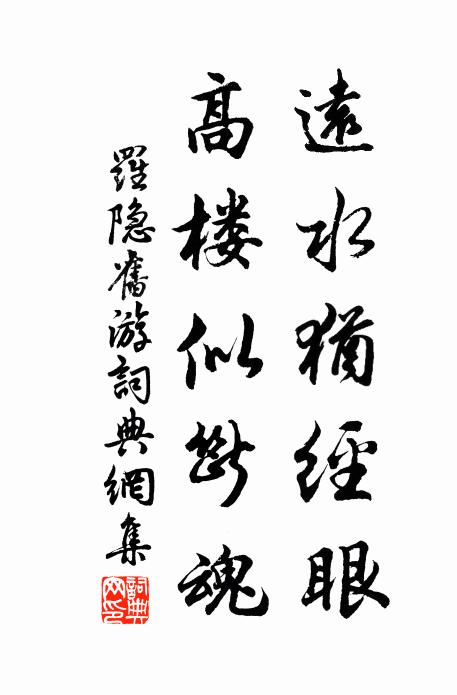 遠水猶經眼
高楼似斷魂
羅隐舊游詞典網集
詞典网印